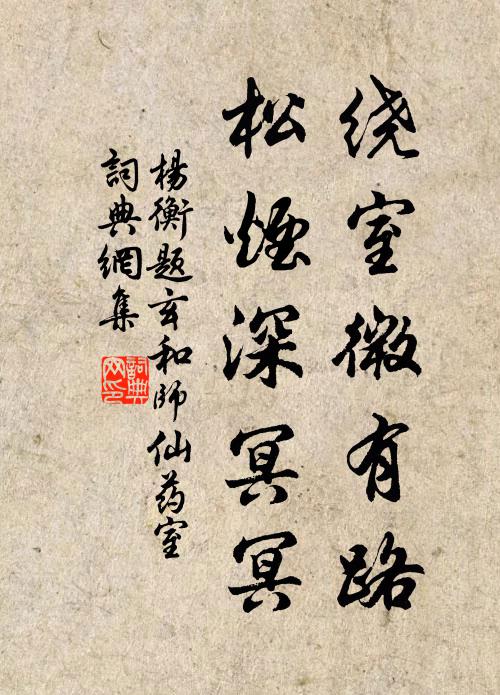 绕室微有路
松煙深冥冥
楊衡题玄和師仙药室
詞典網集
詞典网印